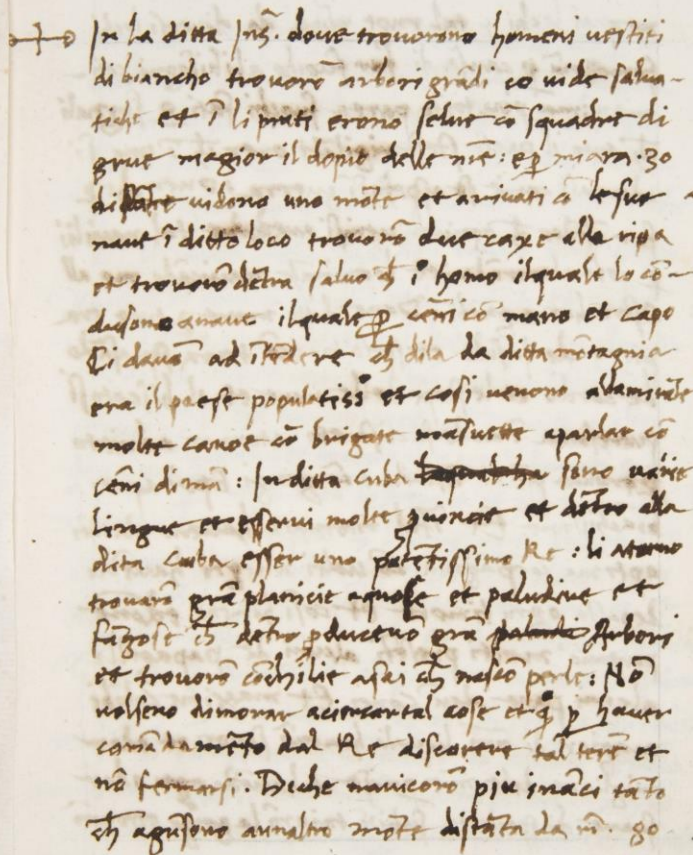 In la ditta Insˉ. dove trovorono homeni vestiti
di biancho trovorō arbori grādi cō vide salva-
tiche et ī li prati erono selve cō squadre di
grue magior il dopio delle nrē : e p̄ miara . 30
vidono uno mōte et arivati cō le sue
nave ī ditto loco trovorō due caxe alla ripa
et trovorō dētra salvo ch̄ i° homo il quale lo cō-
dusono a nave il quale p̄ cēni cō mano et capo
Li davā ad ītēdere ch̄ di la da ditta mōtagnia
era il paese populatiss° et cosi venono
molte canoe cō brigate māsuette a parlar cō
cēni di mā : In ditta cuba sono varie
lingue et esservi molte p̄vincie et dētro alla
dita cuba esser uno potētissimo Re : li atorno
trovarō grā planicie aquose et paludive et
fāgose ch̄ dētro p̄ducevō grā Arbori
et trovorō cōchilie asai ch̄ nascō perle : Nō
volseno dimorar a ciercar tal cose et q° p̄ haver
comādamēto dal Re discorere tal terē et
nō fermarsi . Diche navicorō piu ināci tāto
ch̄ agiūsono a un altro mōte distāta da m̄ . 80